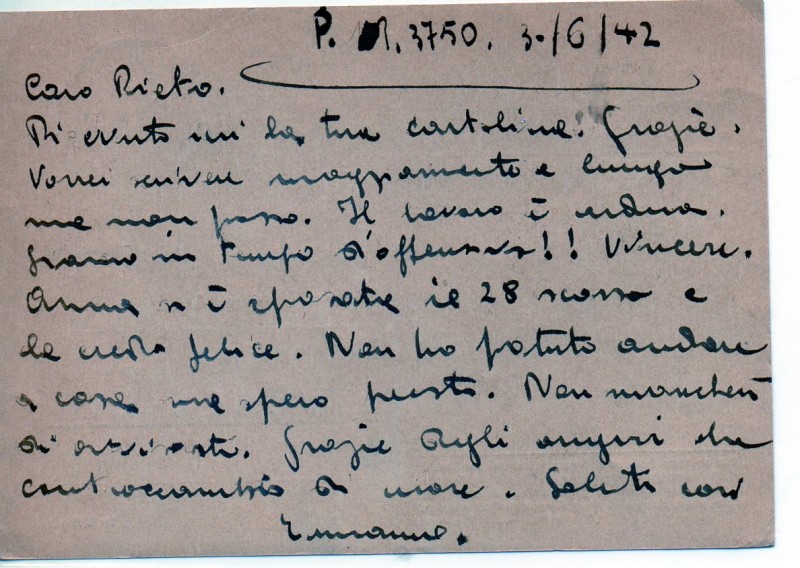 P. M. 3750. 3-/6/42
Caro Pieto.
Ricevuto mi la tua cartolina. Grazie.
Vorrei scrivere maggiormente e lungo
ma non posso. Il lavoro è
Siamo in tempo d'offensiva!! Vincere.
Anna s'è sposata il 28 scorso e
la credo felice. Non ho potuto andare
a casa ma spero presto. Non mancherò
di avvisarti. Grazie degli auguri che
contraccambio di cuore. Saluti cari